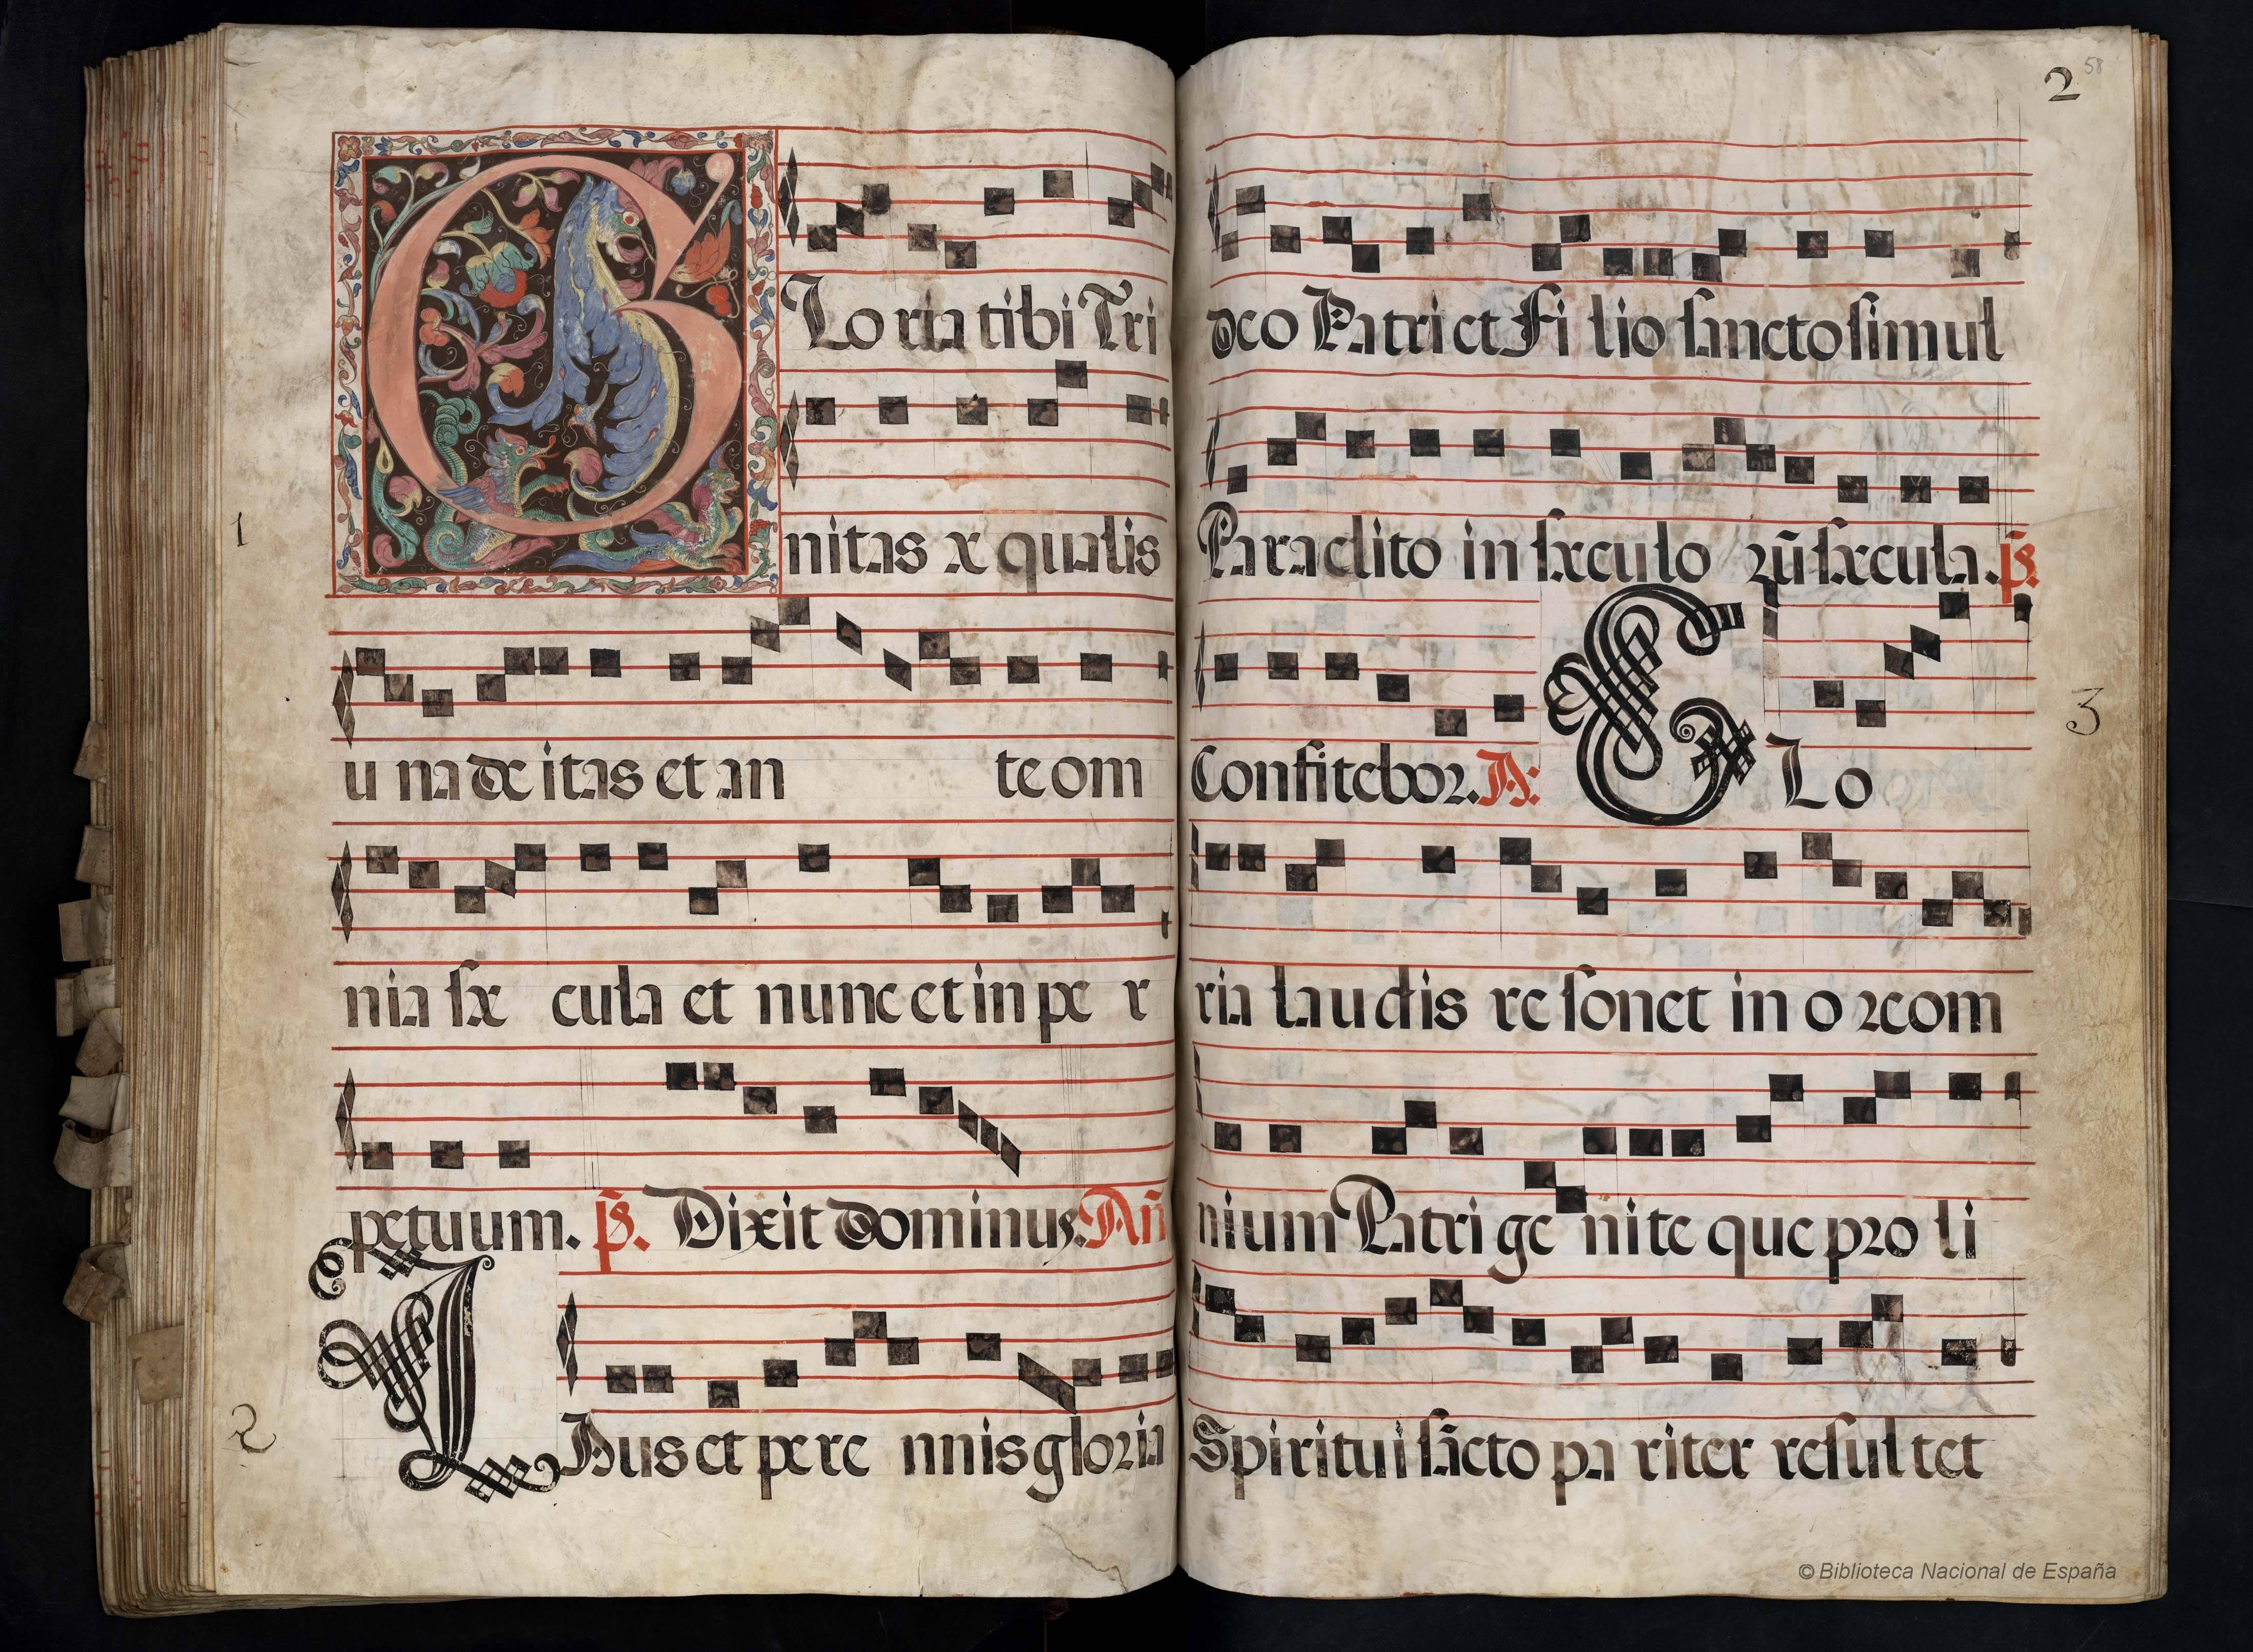 Gloria tibi Tri
nitas æqualis
u na de itas et an te om
nia sæ cula et nunc et in pe r
petuum. p̄s. Dixit dominus. Añ
LAus et pe re nnis gloria
1
2
2
58
deo Patri et Fi lio sancto simul
Paraclito in sæculo rū sæcula. p̄s.
Confitebor. A: Glo
ria laudis re sonet in o re om
nium Patri ge nite que pro li
Spiritui sācto pa riter resul tet
3
© Biblioteca Nacional de España